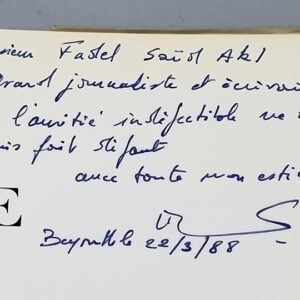 sieur Fadel Saïd Akl
Grand journaliste et écrivain
l'amitié indéfectible ne
fait défaut
avec toute mon esti
E
Beyrouth le 22/3/88